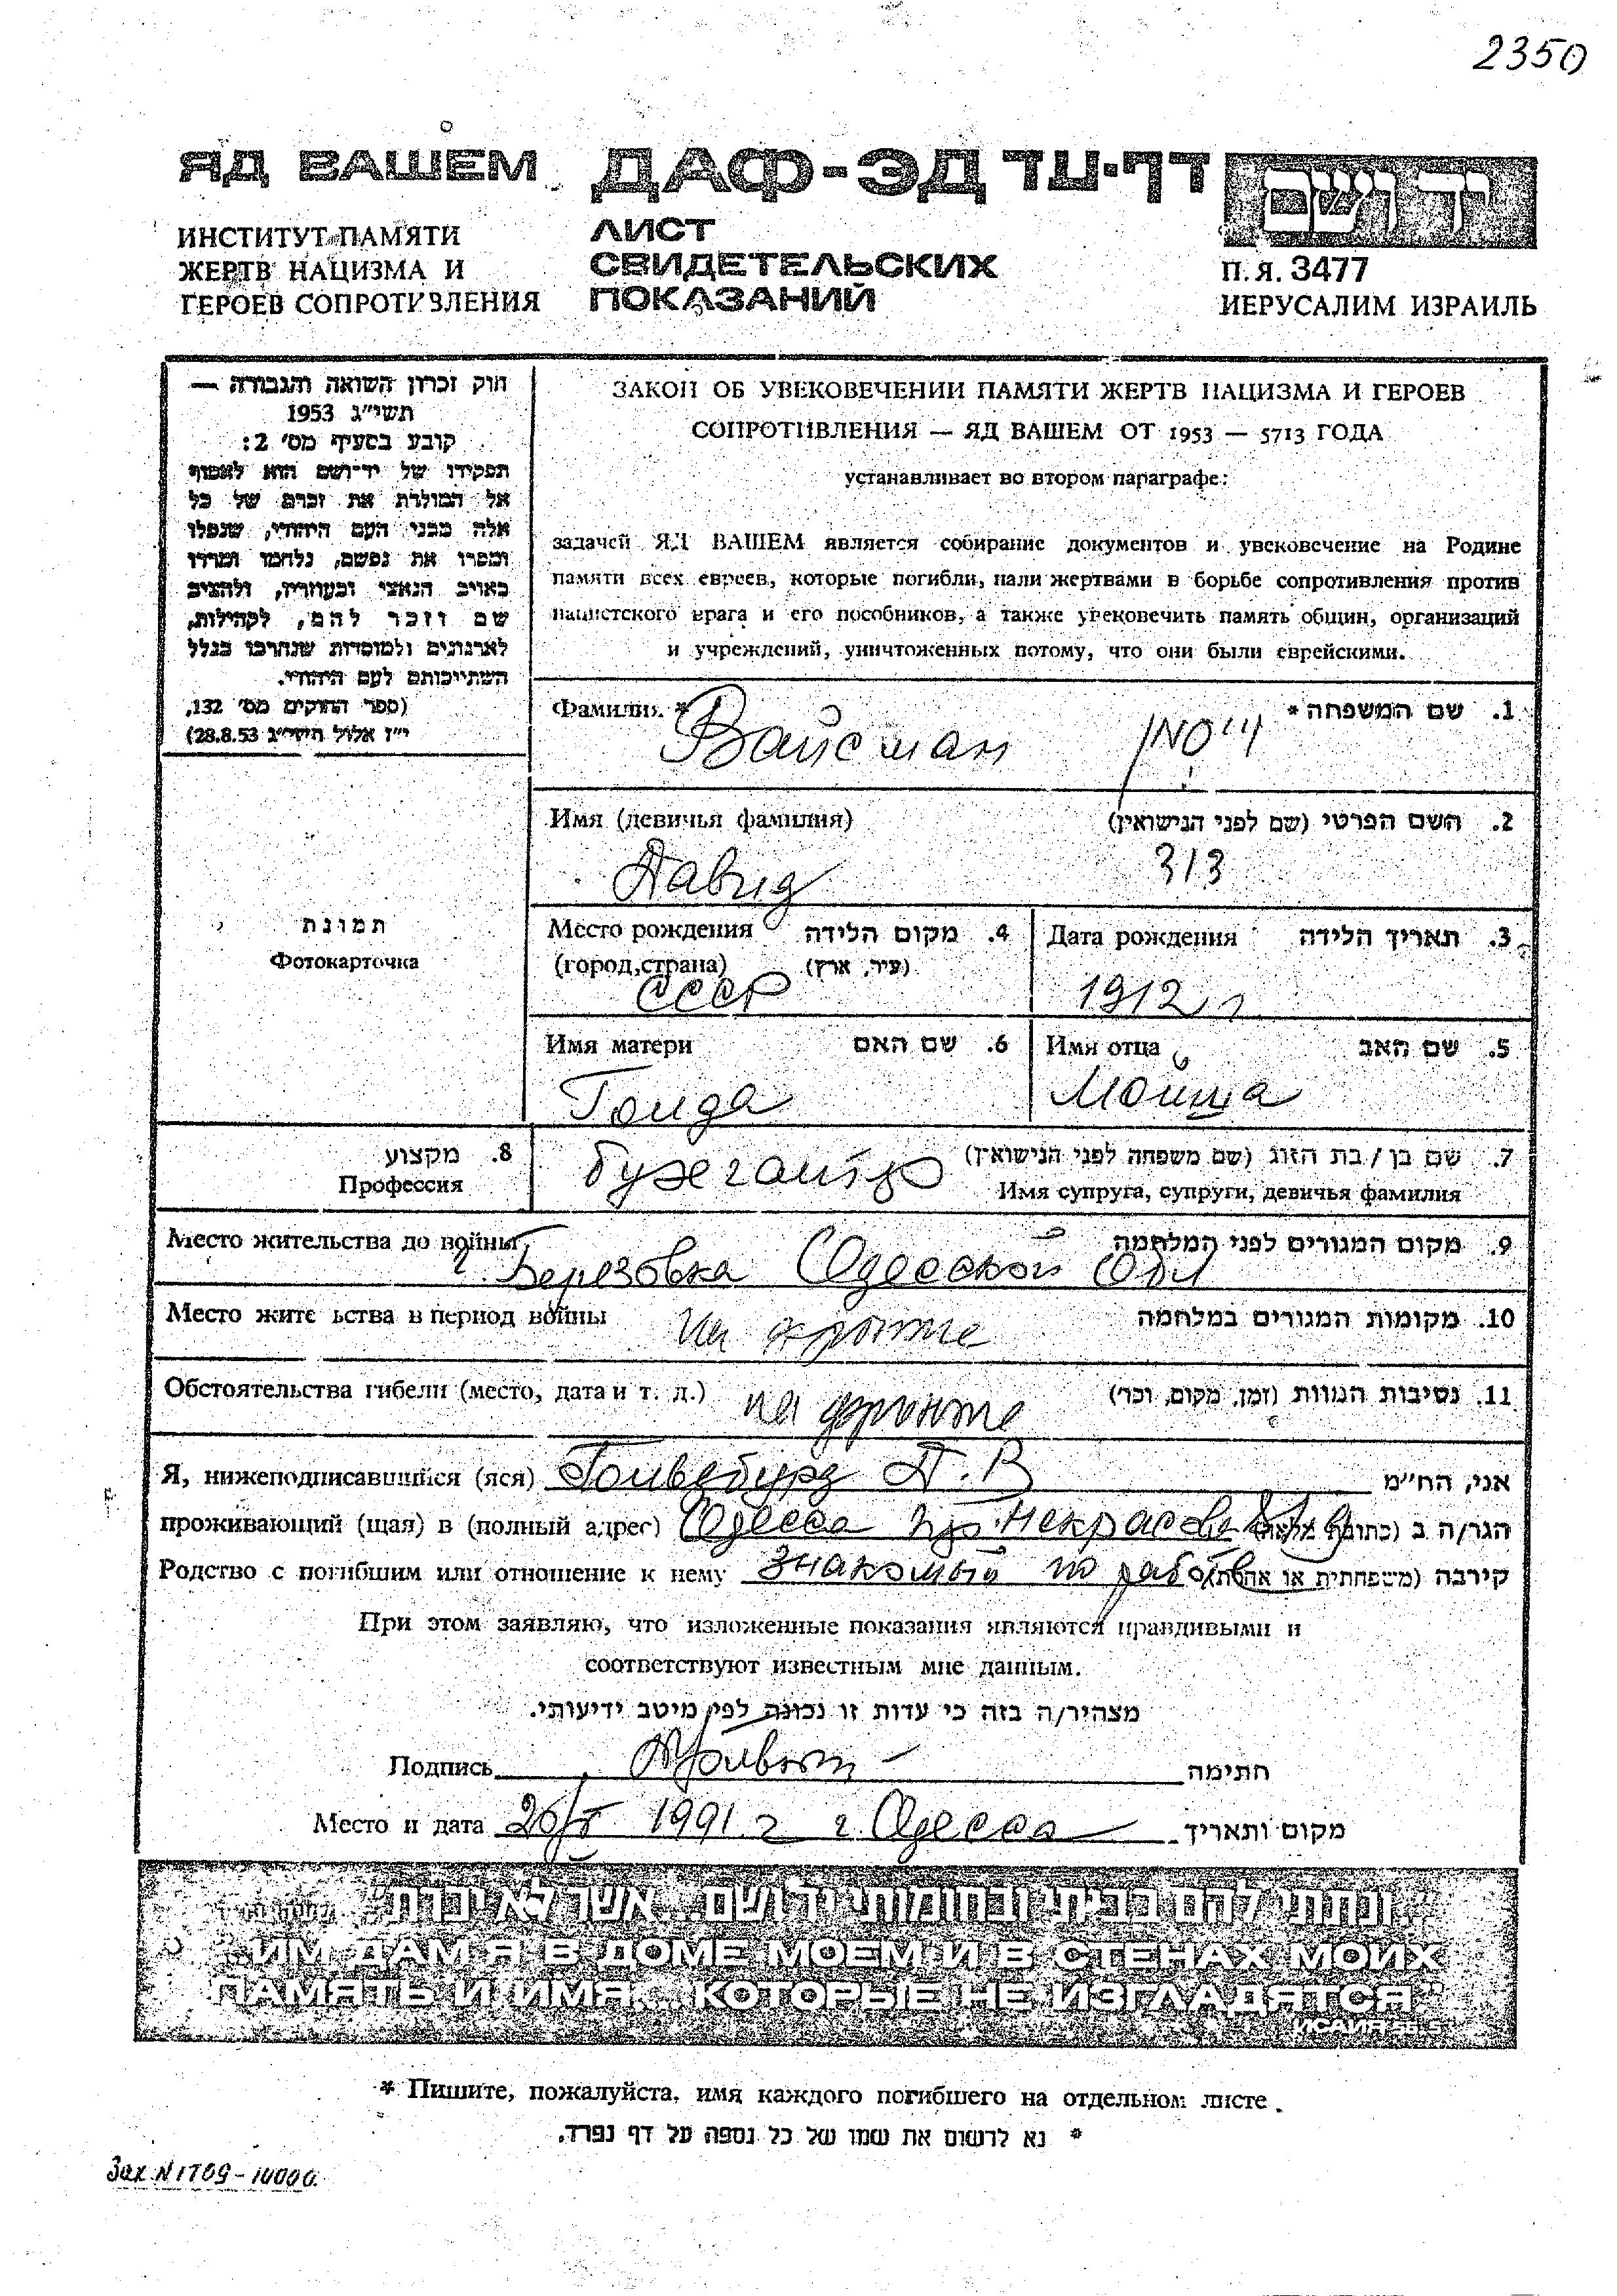 2350
ЯД ВАШЕМ ДАФ-ЭД דף-עד יד ושם
ИНСТИТУТ ПАМЯТИ
ЖЕРТВ НАЦИЗМА И
ГЕРОЕВ СОПРОТИВЛЕНИЯ
ЛИСТ
СВИДЕТЕЛЬСКИХ
ПОКАЗАНИЙ
П. Я. 3477
ИЕРУСАЛИМ ИЗРАИЛЬ
חוק זכרון השואה והגבורה —
תשי״ג 1953
קובע בסעיף מס׳ 2:
תפקידו של יד־ושם הוא לאסוף
אל המולדת את זכרם של כל
אלה מבני העם היהודי, שנפלו
ומסרו את נפשם, נלחמו ומרדו
באויב הנאצי ובעוזריו, ולהציב
שם וזכר להם, לקהילות,
לארגונים ולמוסדות שנחרבו בגלל
השתייכותם לעם היהודי.
(ספר החוקים מס׳ 132,
י״ז אלול תשי״ג 28.8.53)
ЗАКОН ОБ УВЕКОВЕЧЕНИИ ПАМЯТИ ЖЕРТВ НАЦИЗМА И ГЕРОЕВ
СОПРОТИВЛЕНИЯ — ЯД ВАШЕМ ОТ 1953 — 5713 ГОДА
устанавливает во втором параграфе:
задачей ЯД ВАШЕМ является собирание документов и увековечение на Родине
памяти всех евреев, которые погибли, пали жертвами в борьбе сопротивления против
нацистского врага и его пособников, а также увековечить память общин, организаций
и учреждений, уничтоженных потому, что они были еврейскими.
Фамилия * 1. שם המשפחה *
Вайсман
Имя (девичья фамилия) 2. השם הפרטי (שם לפני הנישואין)
Давид
תמונת
Фотокарточка
Место рождения 4. מקום הלידה
(город, страна) (עיר, ארץ)
СССР
Дата рождения 3. תאריך הלידה
1912 г
Имя матери 6. שם האם
Гонда
Имя отца 5. שם האב
Мойша
8. מקצוע
Профессия
бухгалтер
7. שם בן / בת הזוג (שם משפחה לפני הנישואין)
Имя супруга, супруги, девичья фамилия
Место жительства до войны 9. מקום המגורים לפני המלחמה
г. Березовка Одесской обл
Место жите ьства в период войны 10. מקומות המגורים במלחמה
на фронте
Обстоятельства гибели (место, дата и т. д.) 11. נסיבות המוות (זמן, מקום, וכו׳)
на фронте
Я, нижеподписавшийся (яся) Д. В אני, הח״מ
проживающий (щая) в (полный адрес) Одесса הגר/ה ב
Родство с погибшим или отношение к нему знакомый по работе קירבה (משפחתית או אחרת)
При этом заявляю, что изложенные показания являются правдивыми и
соответствуют известным мне данным.
מצהיר/ה בזה כי עדות זו נכונה לפי מיטב ידיעותי.
Подпись חתימה
Место и дата 1991 г г. Одесса מקום ותאריך
״...ונתתי להם בביתי ובחומותי יד ושם... אשר לא יכרת״
"...ИМ ДАМ Я В ДОМЕ МОЕМ И В СТЕНАХ МОИХ
ПАМЯТЬ И ИМЯ... КОТОРЫЕ НЕ ИЗГЛАДЯТСЯ"
ИСАИЯ
* Пишите, пожалуйста, имя каждого погибшего на отдельном листе.
* נא לרשום את שמו של כל נספה על דף נפרד.
Зак. N 1709 - 10000.